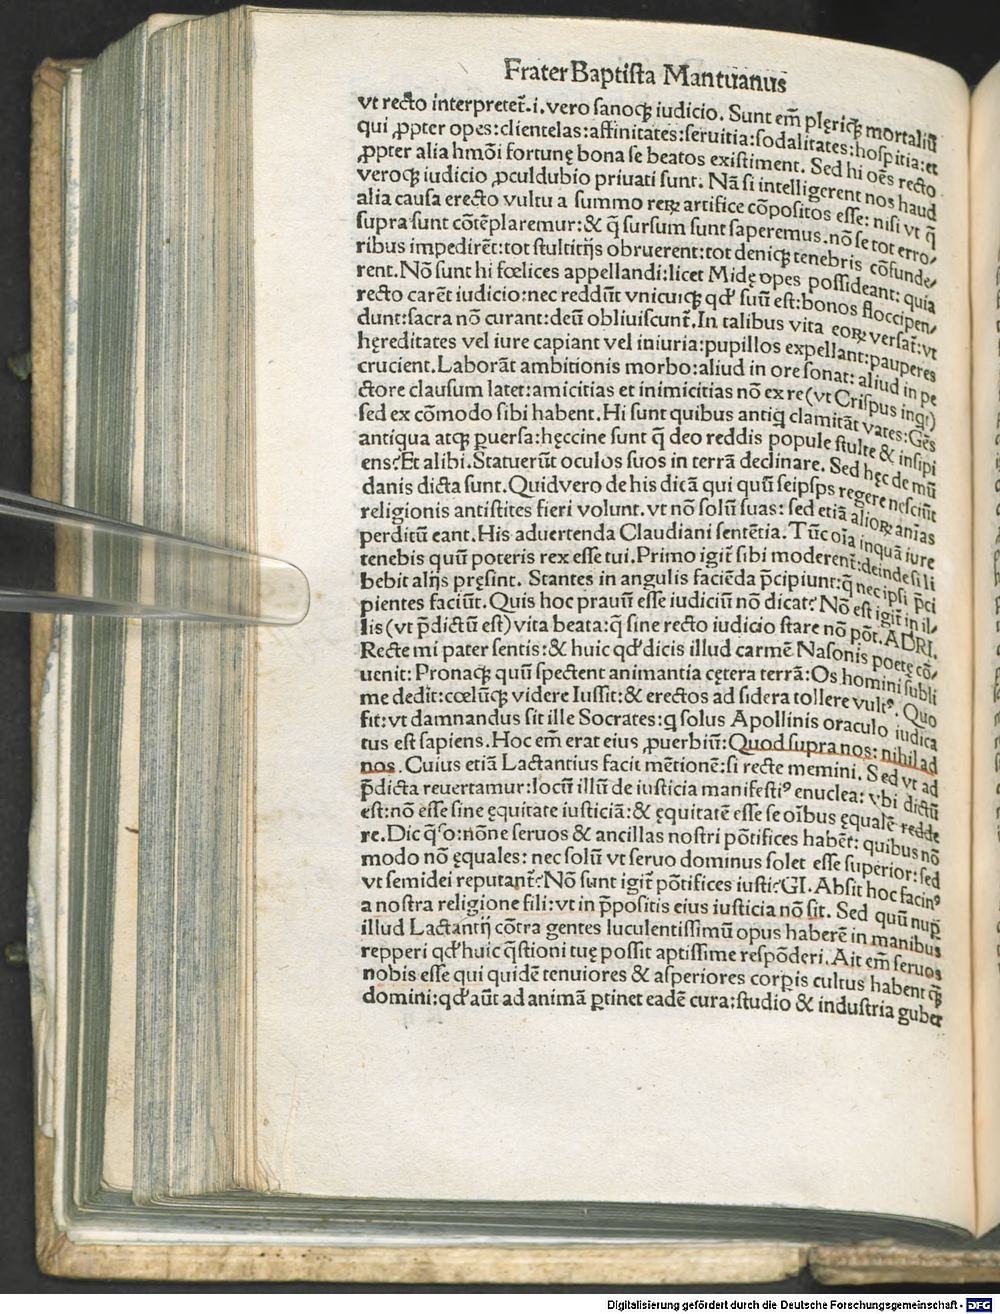 Frater Baptista Mantuanus
vt recto interpretet̃.i.vero sanoqꝫ iudicio. Sunt em̃ plęriqꝫ mortaliũ
qui ꝓpter opes:clientelas:affinitates:seruitia:sodalitates:hospitia:et
ꝓpter alia hmõi fortunę bona se beatos existiment. Sed hi oẽs recto
veroqꝫ iudicio ꝓculdubio priuati sunt. Nã si intelligerent nos haud
alia causa erecto vultu a summo reꝝ artifice cõpositos esse: nisi vt q̃
supra sunt cõtẽplaremur:& q̃ sursum sunt saperemus.nõ se tot erro/
ribus impedirẽt:tot stultitijs obruerent:tot deniqꝫ tenebris cõfunde/
rent.Nõ sunt hi fœlices appellandi:licet Midę opes possideant: quia
recto carẽt iudicio:nec reddũt vnicuiqꝫ qd' suũ est:bonos floccipen/
dunt:sacra nõ curant:deũ obliuiscunt̃.In talibus vita eoꝝ versat̃:vt
hęreditates vel iure capiant vel iniuria:pupillos expellant:pauperes
crucient.Laborãt ambitionis morbo:aliud in ore sonat: aliud in pe
ctore clausum latet:amicitias et inimicitias nõ ex re(vt Crispus inqt)
sed ex cõmodo sibi habent.Hi sunt quibus antiq̃ clamitãt vates:Gẽs
antiqua atqꝫ ꝑuersa:hęccine sunt q̃ deo reddis popule stulte & insipi
ens?Et alibi.Statuerũt oculos suos in terrã declinare. Sed hęc de mũ
danis dicta sunt.Quidvero de his dicã qui quũ seipsps regere nesciũt
religionis antistites fieri volunt.vt nõ solũ suas: sed etiã alioꝝ aniãs
perditũ eant.His aduertenda Claudiani sentẽtia.Tũc oĩa inquã iure
tenebis quũ poteris rex esse tui.Primo igit̃ sibi moderent̃:deinde si li
bebit alijs pręsint. Stantes in angulis faciẽda p̃cipiunt:q̃ nec ipsi p̃ci
pientes faciũt.Quis hoc prauũ esse iudiciũ nõ dicat? Nõ est igit̃ in il/
lis(vt p̃dictũ est)vita beata:q̃ sine recto iudicio stare nõ põt. ADRI.
Recte mi pater sentis:& huic qd' dicis illud carmẽ Nasonis poetę cõ/
uenit:Pronaqꝫ quũ spectent animantia cętera terrã:Os homini subli
me dedit:cœlũqꝫ videre Iussit:& erectos ad sidera tollere vultꝰ. Quo
fit:vt damnandus sit ille Socrates:q̃ solus Apollinis oraculo iudica
tus est sapiens.Hoc em̃ erat eius ꝓuerbiũ:Quod supra nos: nihil ad
nos.Cuius etiã Lactantius facit mẽtionẽ:si recte memini. Sed vt ad
p̃dicta reuertamur:locũ illũ de iusticia manifestiꝰ enuclea: vbi dictũ
est:nõ esse sine ęquitate iusticiã:& ęquitatẽ esse se oĩbus ęqualẽ redde
re.Dic q̃so:nõne seruos & ancillas nostri põtifices habẽt: quibus nõ
modo nõ ęquales: nec solũ vt seruo dominus solet esse superior:sed
vt semidei reputant̃?Nõ sunt igit̃ põtifices iusti?GI.Absit hoc facinꝰ
a nostra religione fili:vt in p̃positis eius iusticia nõ sit. Sed quũ nuꝑ
illud Lactantij cõtra gentes luculentissimũ opus haberẽ in manibus
repperi qd' huic q̃stioni tuę possit aptissime respõderi.Ait em̃ seruos
nobis esse qui quidẽ tenuiores & asperiores corꝑis cultus habent qꝫ
domini:qd' aũt ad animã ꝑtinet eadẽ cura:studio & industria guber
Digitalisierung gefördert durch die Deutsche Forschungsgemeinschaft - DFG